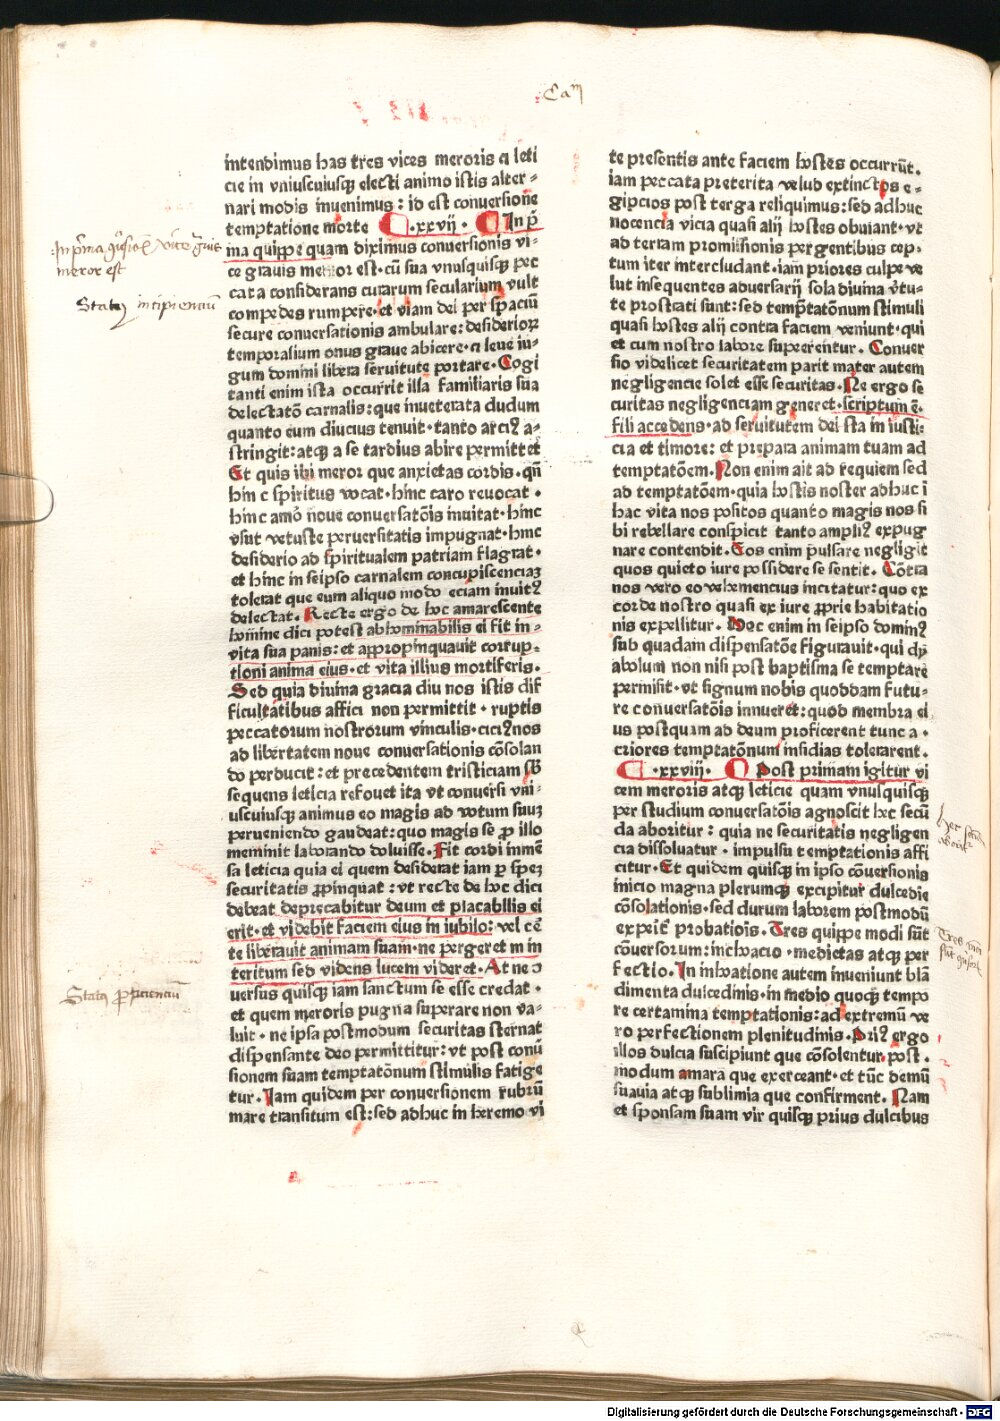 Cam
intendimus has tres vices meroris ⁊ leti
cie in vniuscuiusqꝫ electi animo istis alter⸗
nari modis inuenimus: id est conuersione
temptatione morte .xxvij. In p̄
ma quippe quam diximus conuersionis vi⸗
ce grauis meror est. cū sua vnusquisqꝫ pec
cata considerans curarum secularium vult
compedes rumpere. et viam dei per spaciū
secure conuersationis ambulare: desiderioꝝ
temporalium onus graue abicere. ⁊ leue iu⸗
gum domini libera seruitute portare. Cogi
tanti enim ista occurrit illa familiaris sua
delectatō carnalis: que inueterata dudum
quanto eum diucius tenuit. tanto arciꝰ a⸗
stringit: atqꝫ a se tardius abire permittet
Et quis ibi meror que anxietas cordis. qn̄
hinc spiritus vocat. hinc caro reuocat.
hinc amo᷑ noue conuersatōis inuitat. hinc
vsus vetuste peruersitatis impugnat. hinc
desiderio ad spiritualem patriam flagrat.
et hinc in seipso carnalem concupiscenciaꝫ
tolerat que eum aliquo modo eciam inuitꝰ
delectat. Recte ergo de hoc amarescente
homine dici potest abhominabilis ei fit in⸗
vita sua panis: et appropinquauit corrup⸗
tioni anima eius. et vita illius mortiferis.
Sed quia diuina gracia diu nos istis dif
ficultatibus affici non permittit. ruptis
peccatorum nostrorum vinculis. ciciꝰ nos
ad libertatem noue conuersationis cōsolan
do perducit: et precedentem tristiciam sb̄
sequens leticia refouet ita vt conuersi vni⸗
uscuiusqꝫ animus eo magis ad votum suuꝫ
perueniendo gaudeat: quo magis se ꝓ illo
meminit laborando doluisse. Fit cordi inmē
sa leticia quia ei quem desiderat iam ꝑ speꝫ
securitatis ꝓpinquat: vt recte de hoc dici
debeat deprecabitur deum et placabilis ei
erit. et videbit faciem eius in iubilo: vel cē⸗
te liberauit animam suam. ne pergeret in in
teritum sed videns lucem videret. At ne ↄ
uersus quisqꝫ iam sanctum se esse credat.
et quem meroris pugna superare non va⸗
luit. ne ipsa postmodum securitas sternat
dispensante deo permittitur: vt post conū
sionem suam temptatōnum stimulis fatige
tur. Iam quidem per conuersionem rubrū
mare transitum est: sed adhuc in heremo vi
te presentis ante faciem hostes occurrūt.
iam peccata preterita velud extinctos e⸗
gipcios post terga reliquimus: sed adhuc
nocencia vicia quasi alij hostes obuiant. vt
ad terram promissionis pergentibus cep⸗
tum iter intercludant. iam priores culpe ve
lut insequentes aduersarij sola diuina v̄tu⸗
te prostrati sunt: sed temp̄tatōnum stimuli
quasi hostes alij contra faciem veniunt. qui
et cum nostro labore superentur. Conuer
sio videlicet securitatem parit mater autem
negligencie solet esse securitas. Ne ergo se
curitas negligenciam generet. scriptum ē.
fili accedens. ad seruitutem dei sta in iusti⸗
cia et timore: et prepara animam tuam ad
temptatōem. Non enim ait ad requiem sed
ad temptatōem. quia hostis noster adhuc ī
hac vita nos positos quanto magis nos si
bi rebellare conspicit tanto ampliꝰ expug
nare contendit. Eos enim pulsare negligit
quos quieto iure possidere se sentit. Cōtra
nos vero eo vehemencius incitatur: quo ex
corde nostro quasi ex iure ꝓprie habitatio
nis expellitur. Hec enim in seipso dominꝰ
sub quadam dispensatōe figurauit. qui dy
abolum non nisi post baptisma se temptare
permisit. vt signum nobis quoddam futu⸗
re conuersatōis innueret: quod membra ei
us postquam ad deum proficerent tunc a⸗
criores temptatōnum insidias tolerarent.
.xxviij. Post primam igitur vi
cem meroris atqꝫ leticie quam vnusquisqꝫ
per studium conuersatōis agnoscit hec secū
da aboritur: quia ne securitatis negligen
cia dissoluatur. impulsu temptationis affi
citur. Et quidem quisqꝫ in ipso cōuersionis
inicio magna plerumqꝫ excipitur dulcedie
cōsolationis. sed durum laborem postmodū
experit᷑ probatiois. Tres quippe modi sūt
cōuersorum: inchoacio. medietas atqꝫ per
fectio. In inchoatione autem inueniunt blā
dimenta dulcedinis. in medio quoqꝫ tempo
re certamina temptationis: ad extremū ve
ro perfectionem plenitudinis. Priꝰ ergo
illos dulcia suscipiunt que cōsolentur. post⸗
modum amara que exerceant. et tūc demū
suauia atqꝫ sublimia que confirment. Nam
et sponsam suam vir quisqꝫ prius dulcibus
meror est
Statꝰ incipienciū
Statꝰ ꝓficienciū
Digitalisierung gefördert durch die Deutsche Forschungsgemeinschaft - DFG